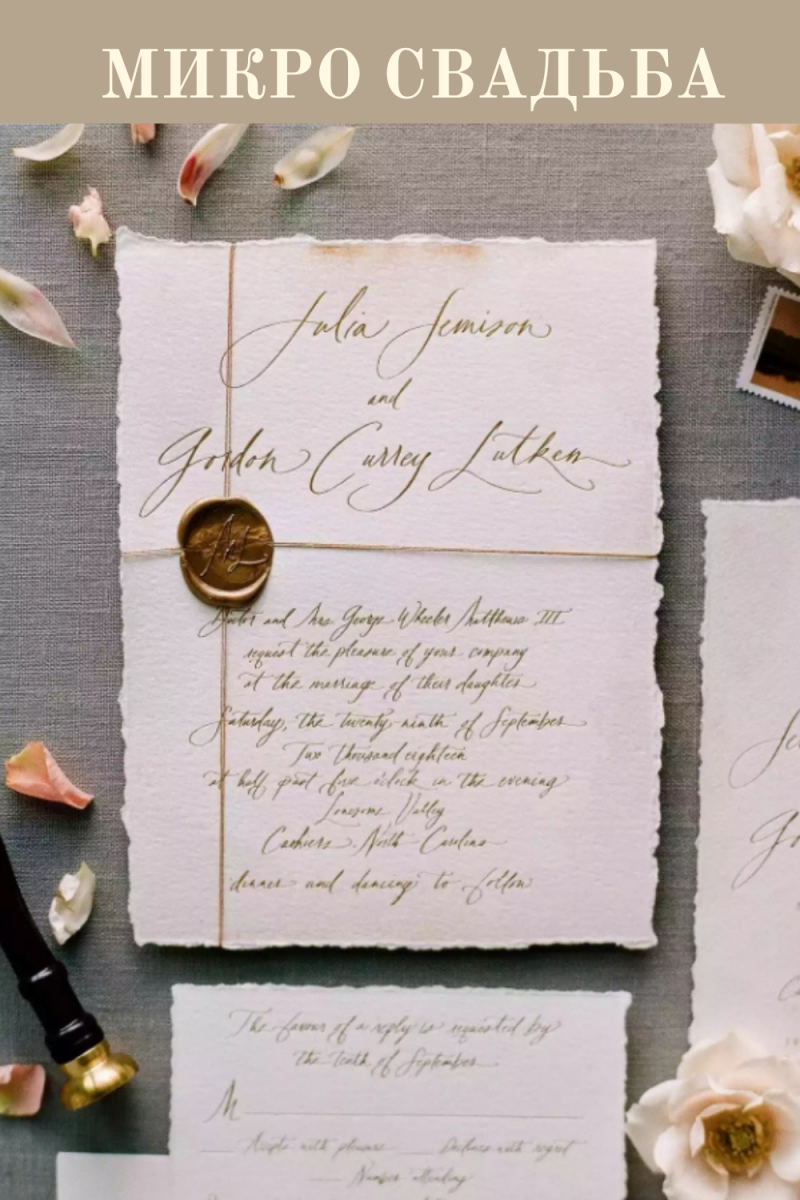 МИКРО СВАДЬБА
Julia Jemison
and
Gordon Currey Lutken
Doctor and Mrs. George Wheeler Matthews III
request the pleasure of your company
at the marriage of their daughter
Saturday, the twenty-ninth of September
Two thousand eighteen
at half past five o'clock in the evening
Lonesome Valley
Cashiers, North Carolina
dinner and dancing to follow
The favour of a reply is requested by
the tenth of September
M
Accepts with pleasure Declines with regret
Number attending
Je
Go